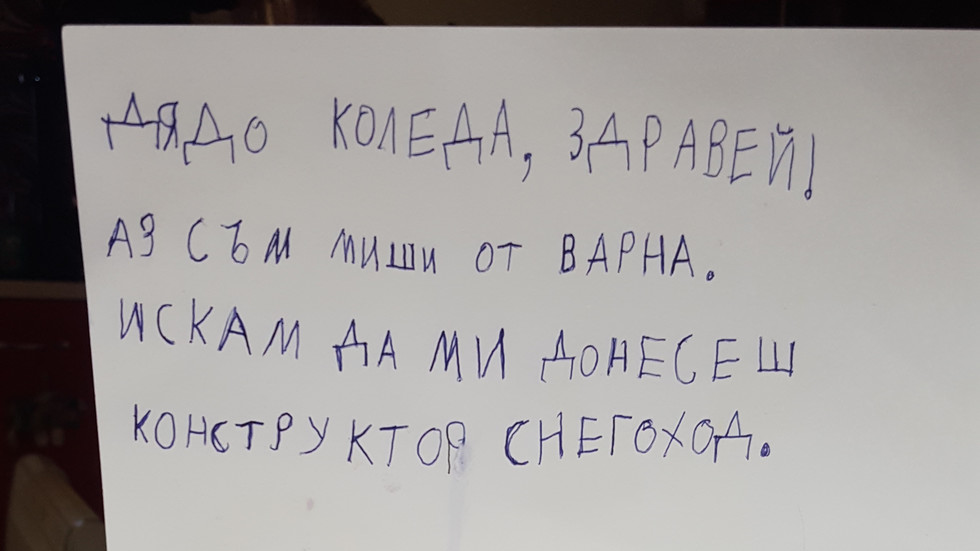 ДЯДО КОЛЕДА, ЗДРАВЕЙ!
АЗ СЪМ МИШИ ОТ ВАРНА.
ИСКАМ ДА МИ ДОНЕСЕШ
КОНСТРУКТОР СНЕГОХОД.